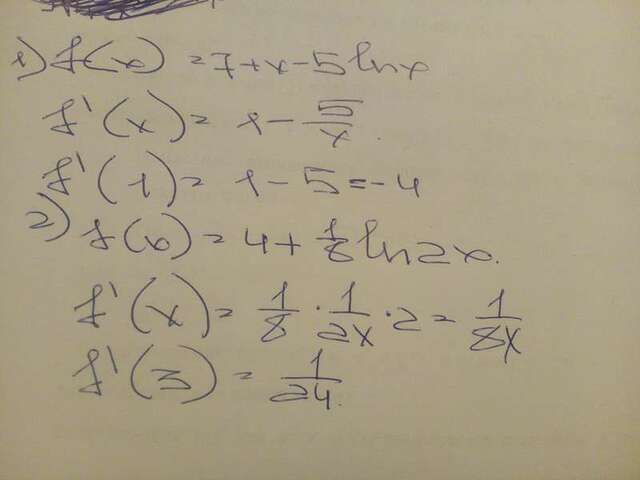 1) f(x) = 7 + x - 5 ln x
f'(x) = 1 - 5/x.
f'(1) = 1 - 5 = -4
2) f(x) = 4 + 1/8 ln 2x.
f'(x) = 1/8 · 1/2x · 2 = 1/8x
f'(3) = 1/24.